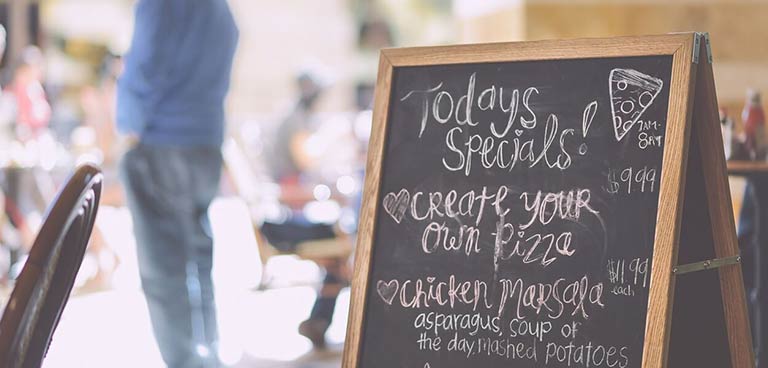 Todays
Specials!
7AM-
8PM
$9.99
Create your
own pizza
$11.99
each
Chicken Marsala
asparagus, soup of
the day, mashed potatoes